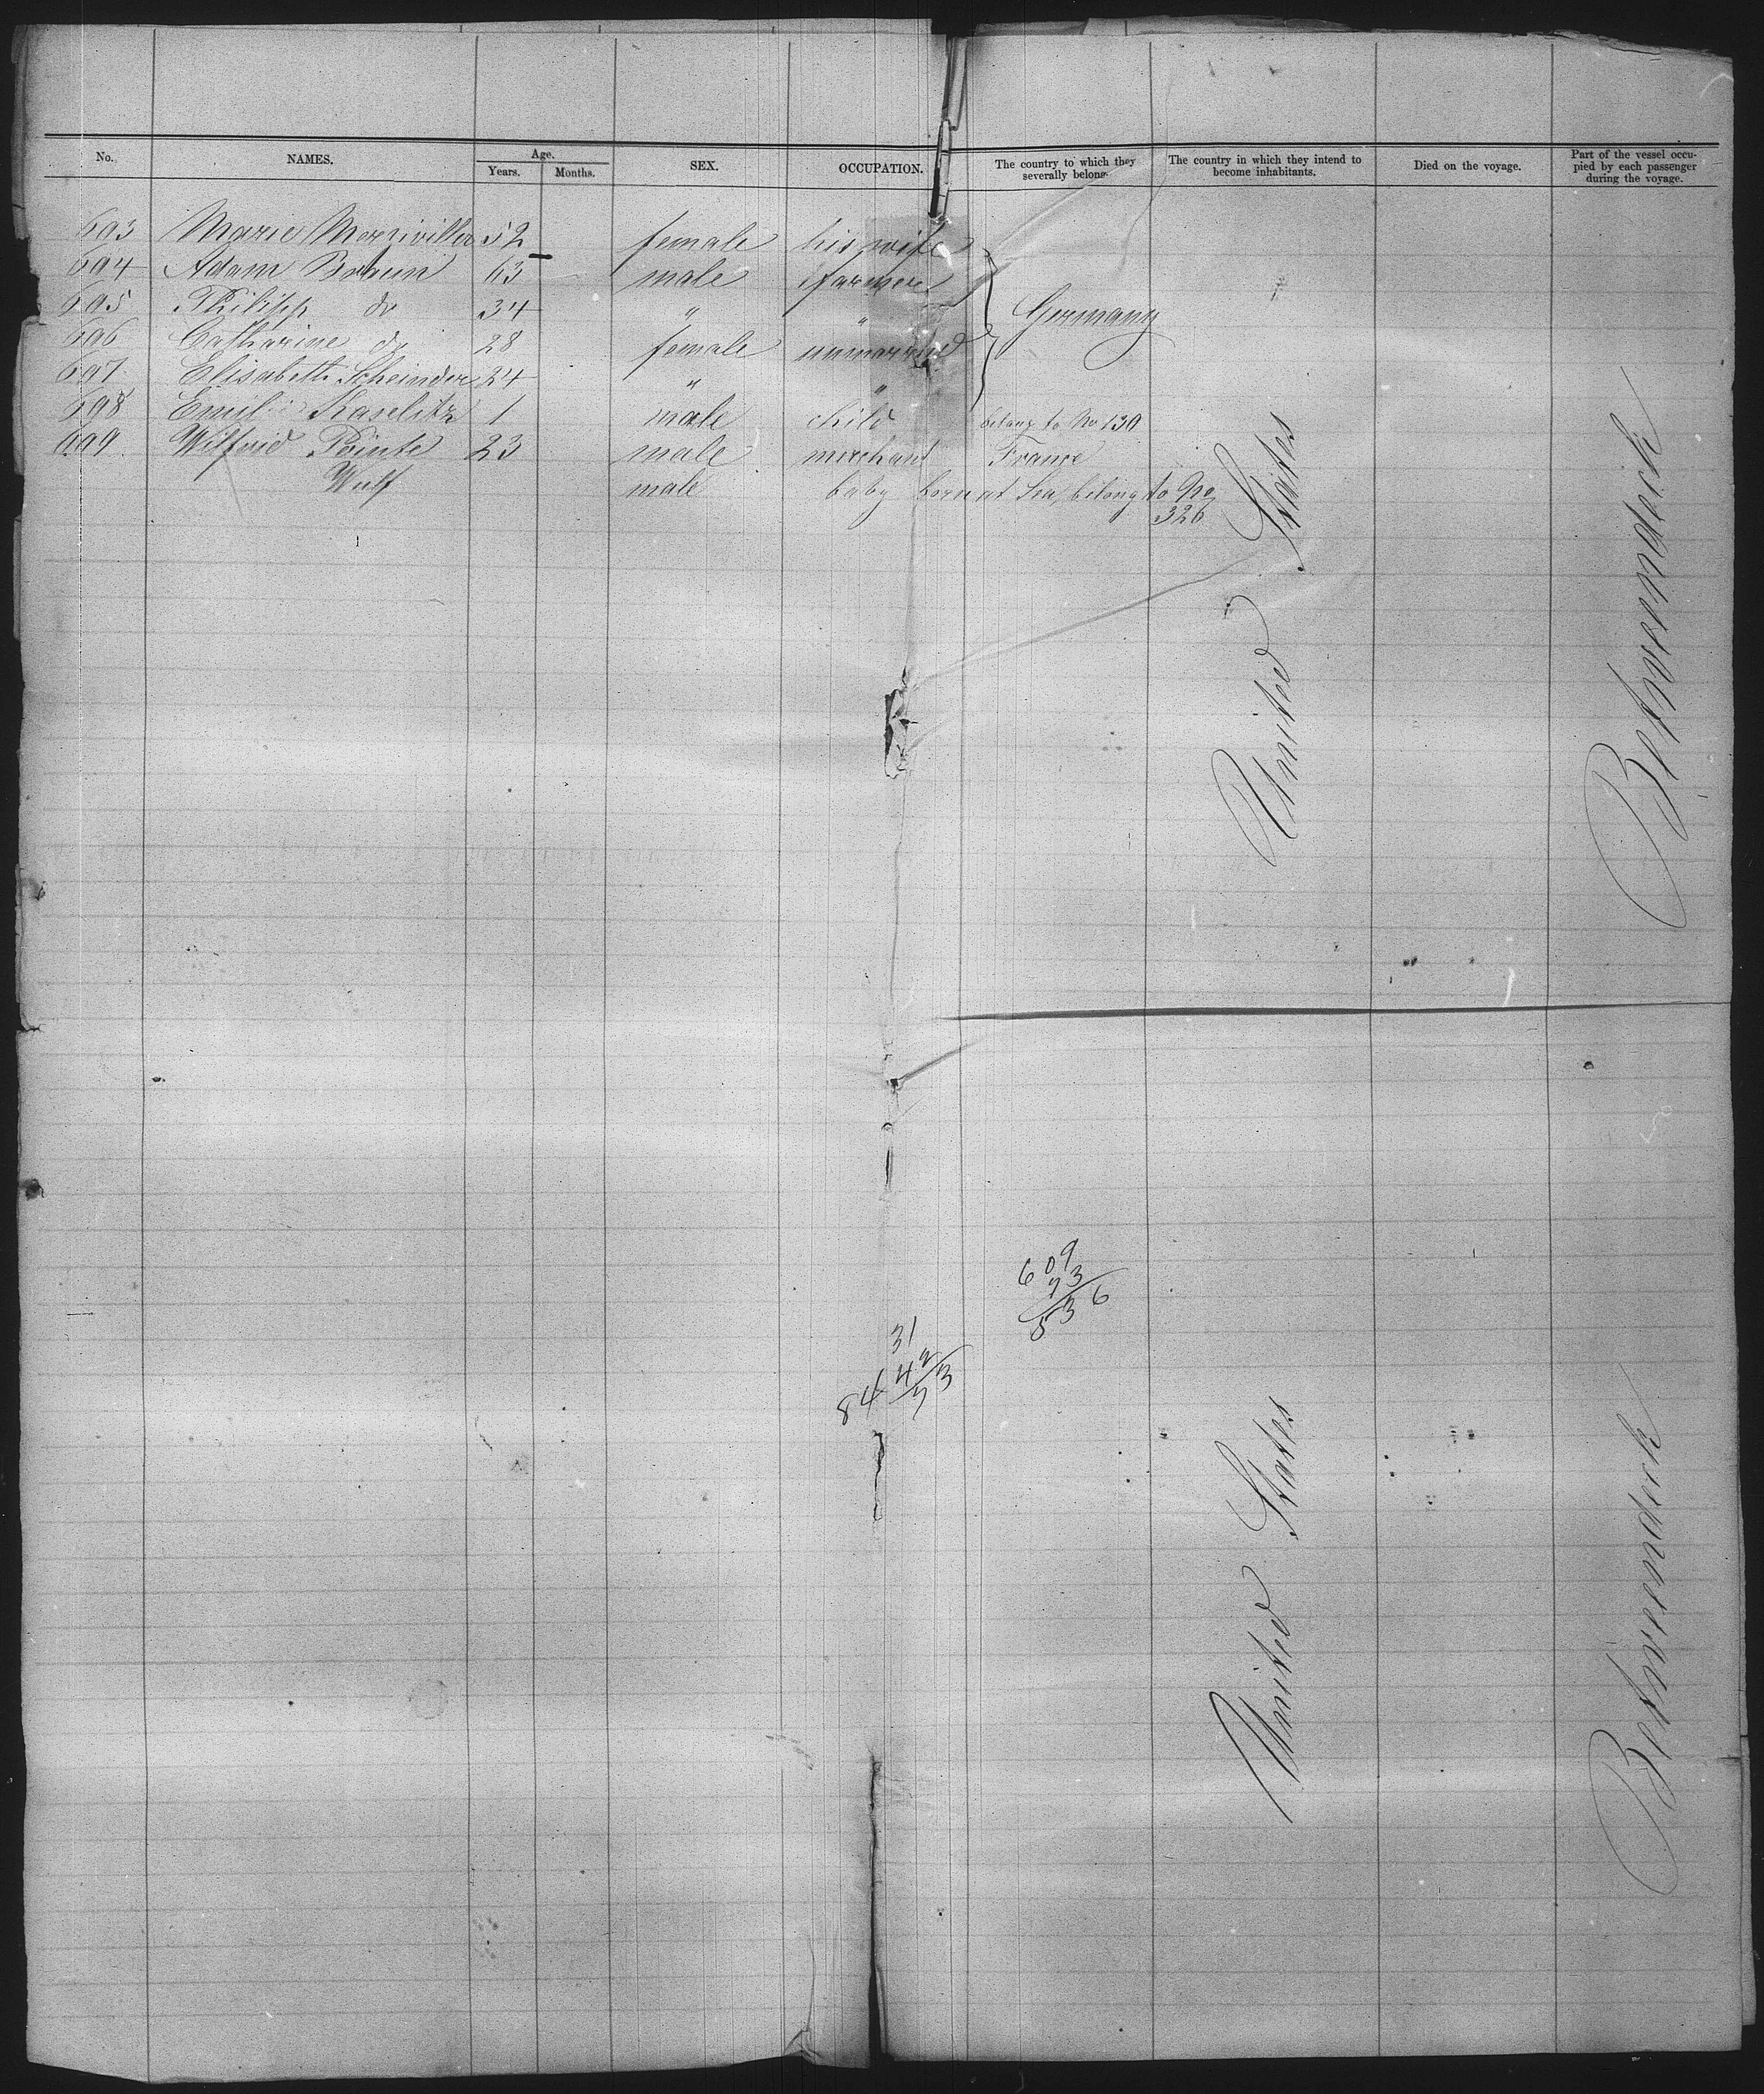 No. NAMES. Age. Years. Months. SEX. OCCUPATION. The country to which they severally belong. The country in which they intend to become inhabitants. Died on the voyage. Part of the vessel occupied by each passenger during the voyage.
603 Marie 52 female his wife
604 Adam Braun 63 male farmer
605 Philipp do 34 " " Germany
606 Catharine do 28 female unmarried
607 Elisabeth Scheinder 24 " "
608 Emil Kaselitz 1 male child belong to No 130
609 Wilfrid Pointe 23 male merchant France
Wulf male baby born at Sea, belong to No
326
United States
Betweendeck
609
73
536
31
42
84 73
United States
Betweendeck